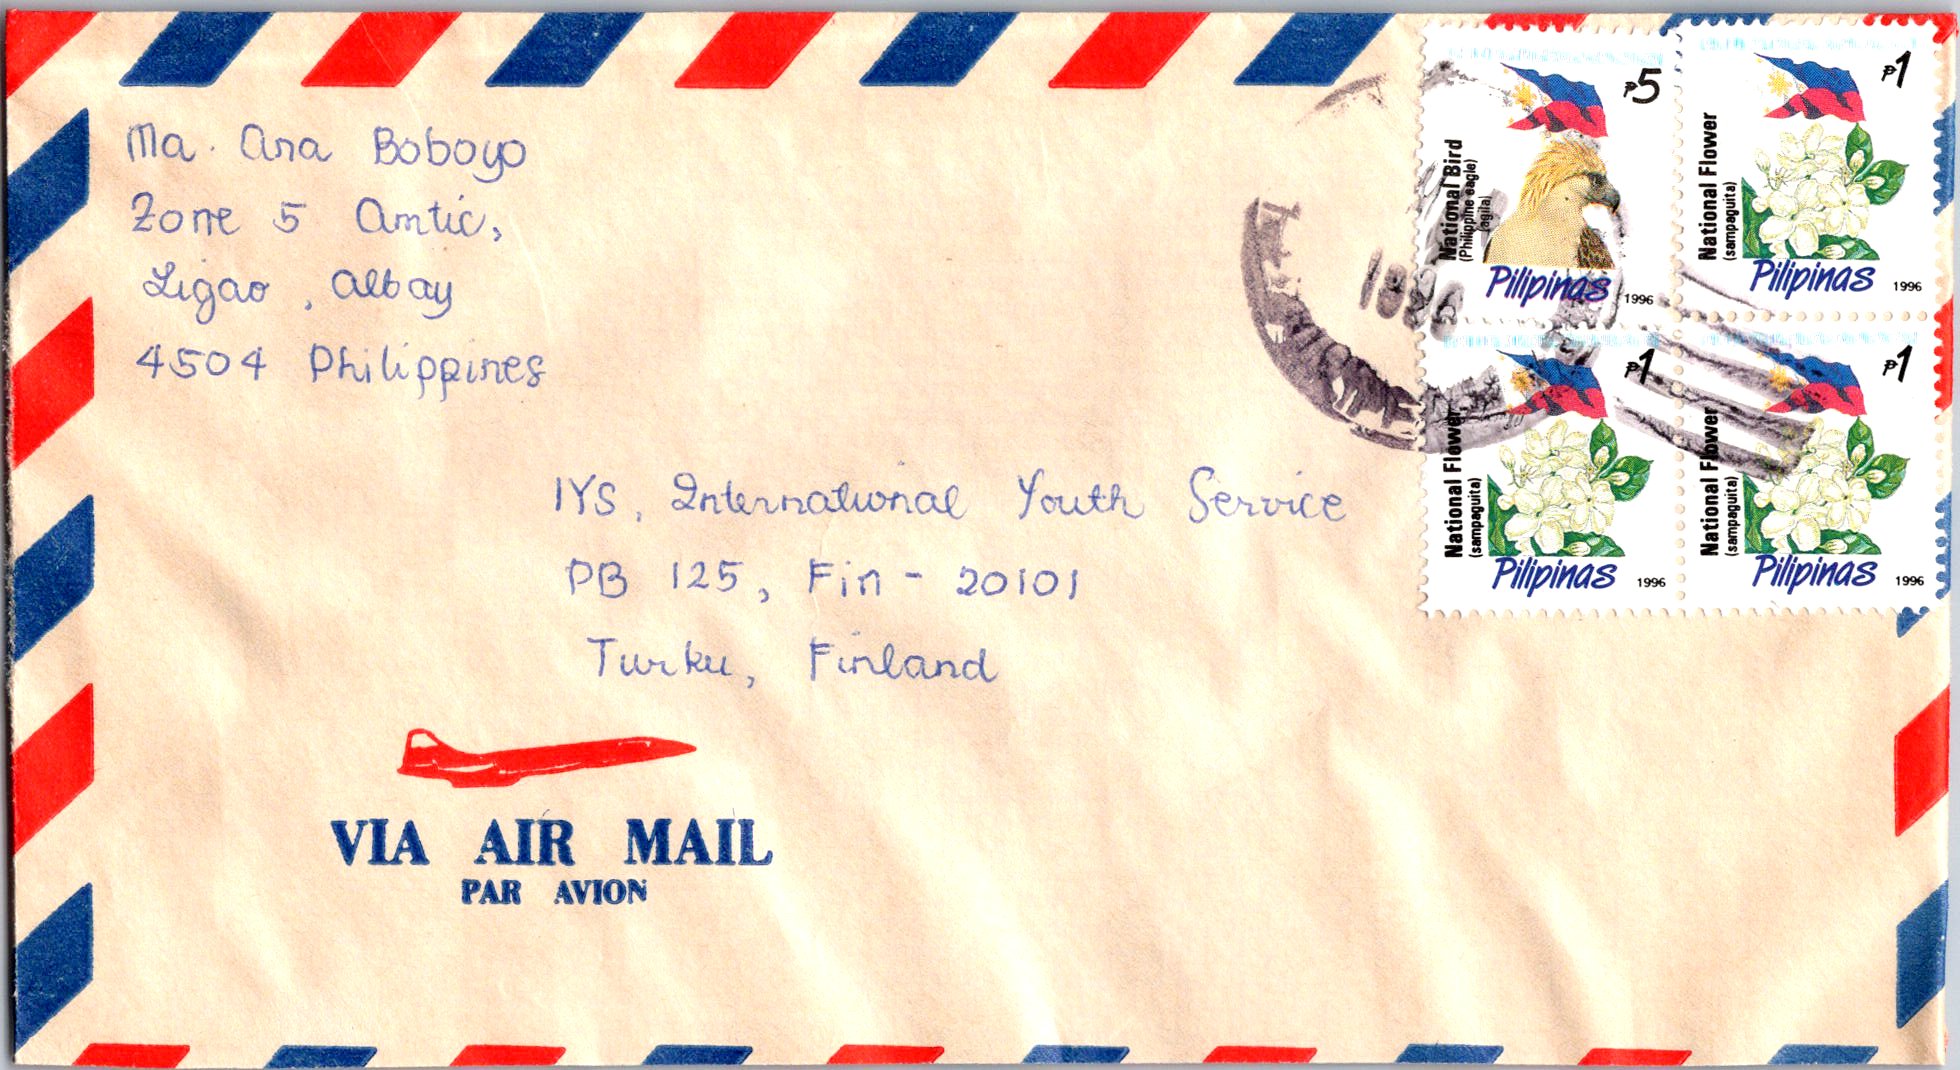 Ma. Ana Boboyo
Zone 5 Amtic,
Ligao, Albay
4504 Philippines
IYS, International Youth Service
PB 125, Fin - 20101
Turku, Finland
VIA AIR MAIL
PAR AVION
₱5
National Bird
(Philippine eagle)
(agila)
Pilipinas 1996
₱1
National Flower
(sampaguita)
Pilipinas 1996
₱1
National Flower
(sampaguita)
Pilipinas 1996
₱1
National Flower
(sampaguita)
Pilipinas 1996